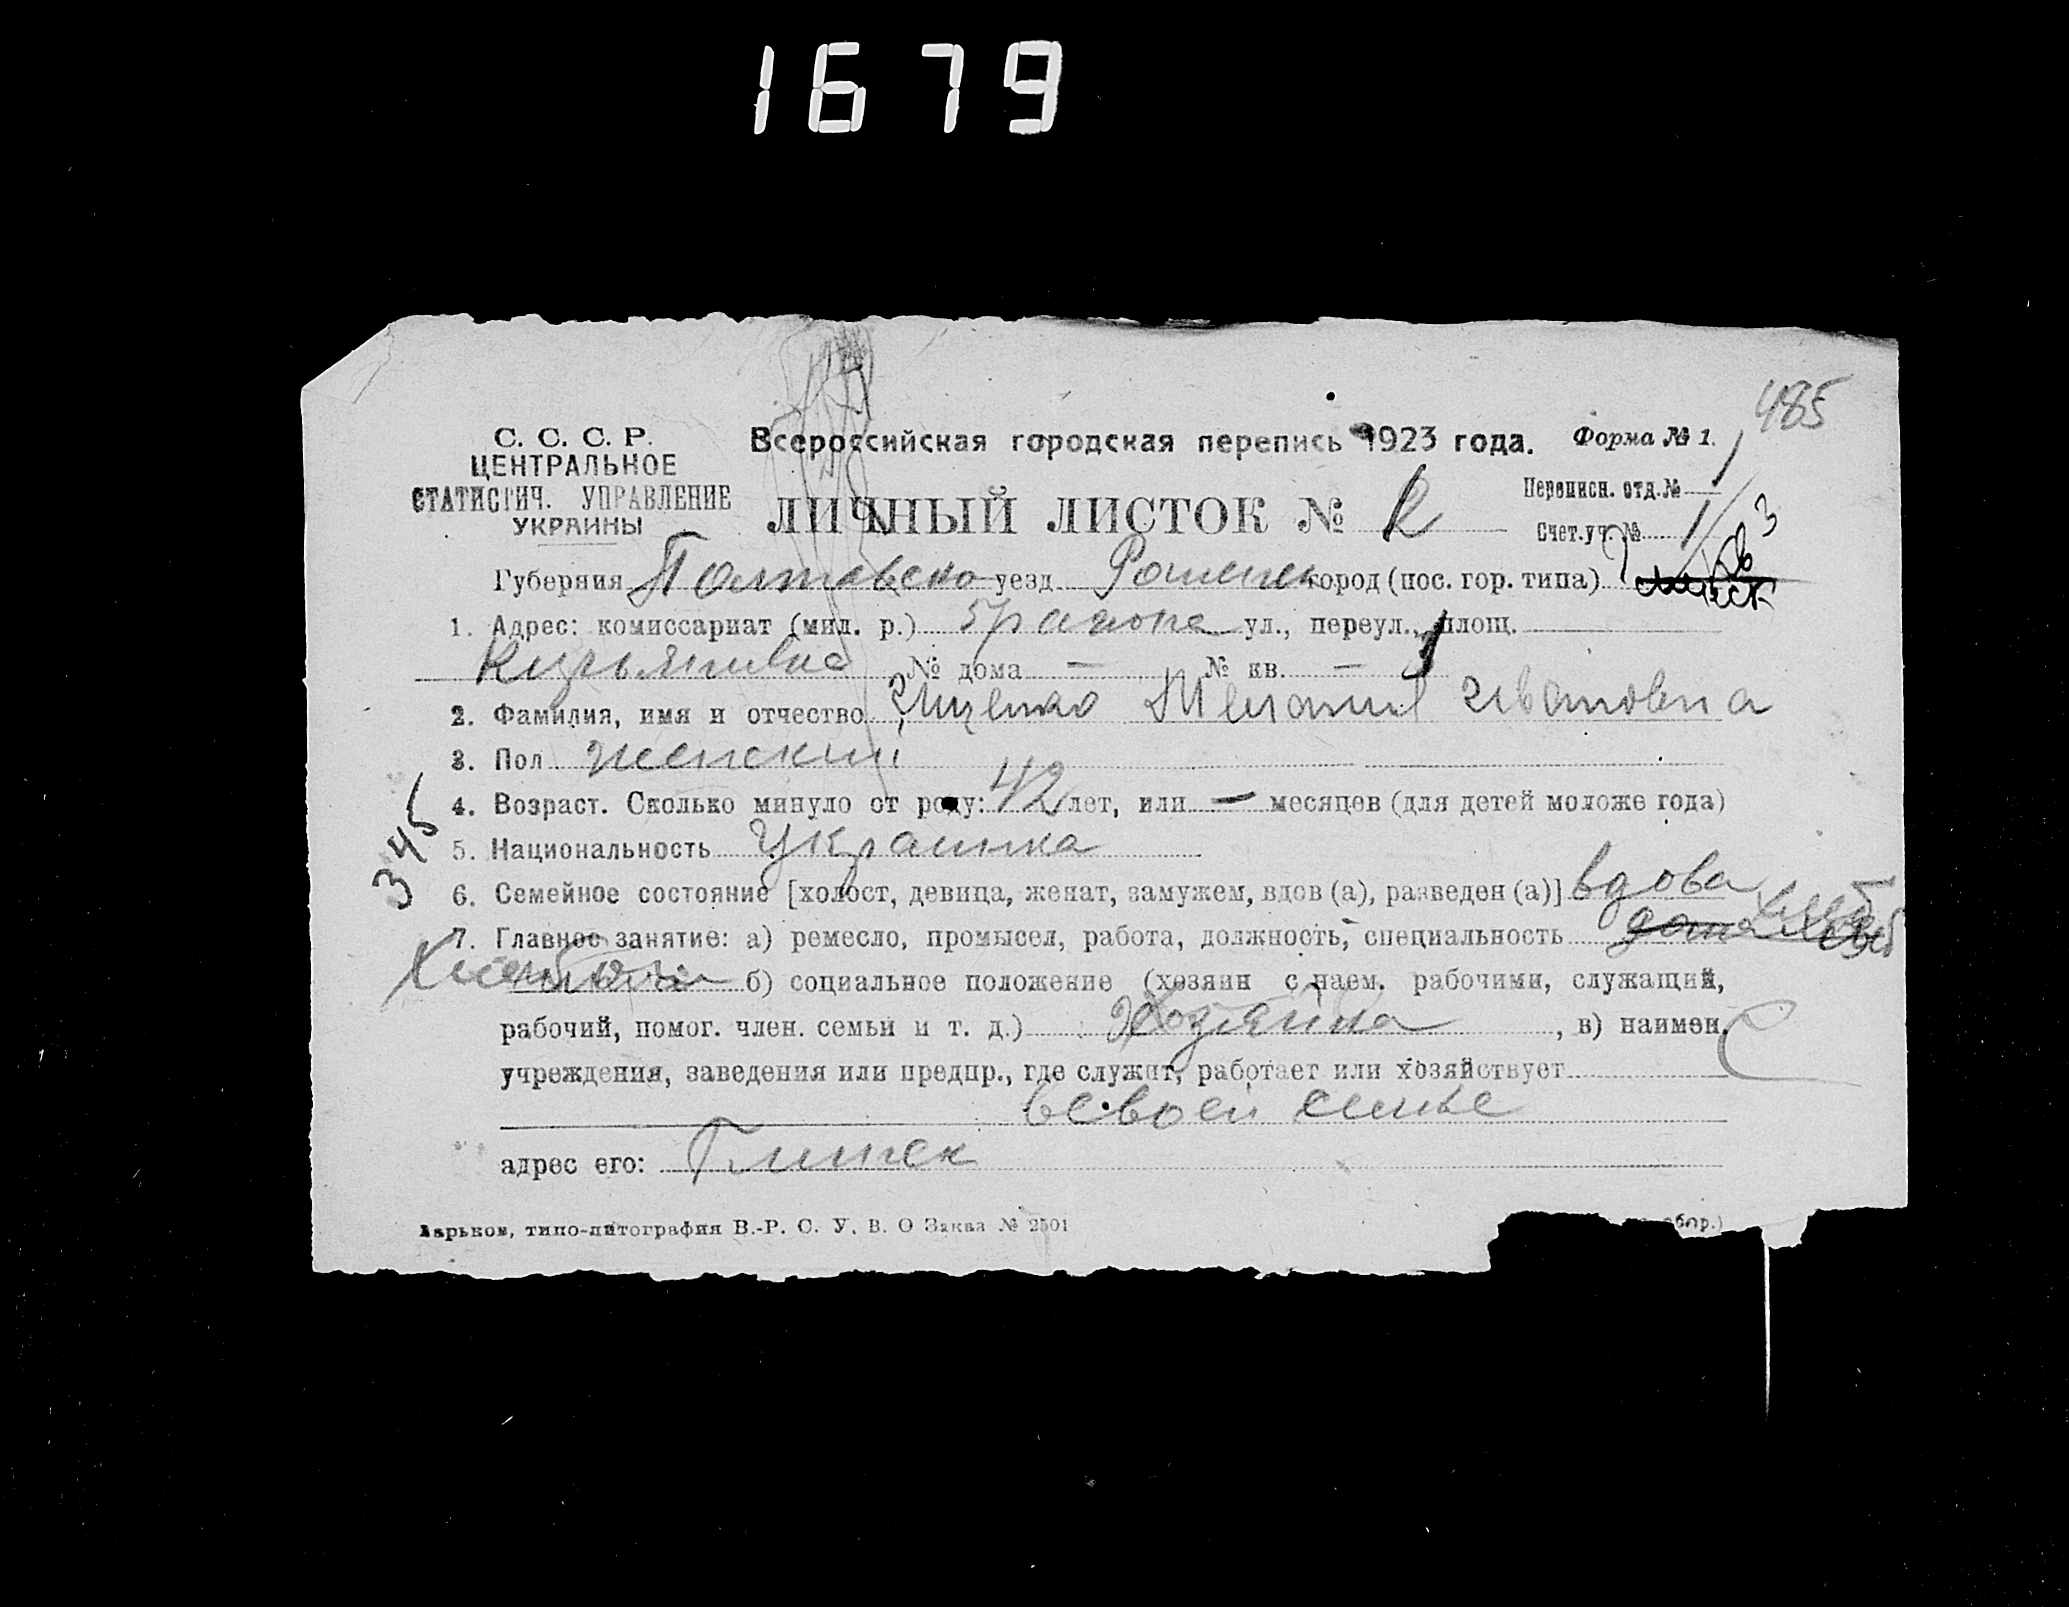 1679
485
С. С. С. Р.
ЦЕНТРАЛЬНОЕ
СТАТИСТИЧ. УПРАВЛЕНИЕ
УКРАИНЫ
Всероссийская городская перепись 1923 года. Форма № 1.
Переписн. отд. № 1
ЛИЧНЫЙ ЛИСТОК № 2
Счет. уч. № 1
3
Губерния Полтавско уезд Роменск город (пос. гор. типа)
1. Адрес: комиссариат (мил. р.) 5 района ул., переул., площ.
№ дома — № кв. — 1
2. Фамилия, имя и отчество Ивановна
3. Пол женский
4. Возраст. Сколько минуло от роду: 42 лет, или — месяцев (для детей моложе года)
345
5. Национальность Украинка
6. Семейное состояние [холост, девица, женат, замужем, вдов (а), разведен (а)] вдова
7. Главное занятие: а) ремесло, промысел, работа, должность, специальность
б) социальное положение (хозяин с наем. рабочими, служащий,
рабочий, помог. член. семьи и т. д.) Хозяйка , в) наимен.
учреждения, заведения или предпр., где служит, работает или хозяйствует
в своей семье
адрес его: Глинск
Харьков, типо-литография В.-Р. С. У. В. О Заказ № 2501
обор.)